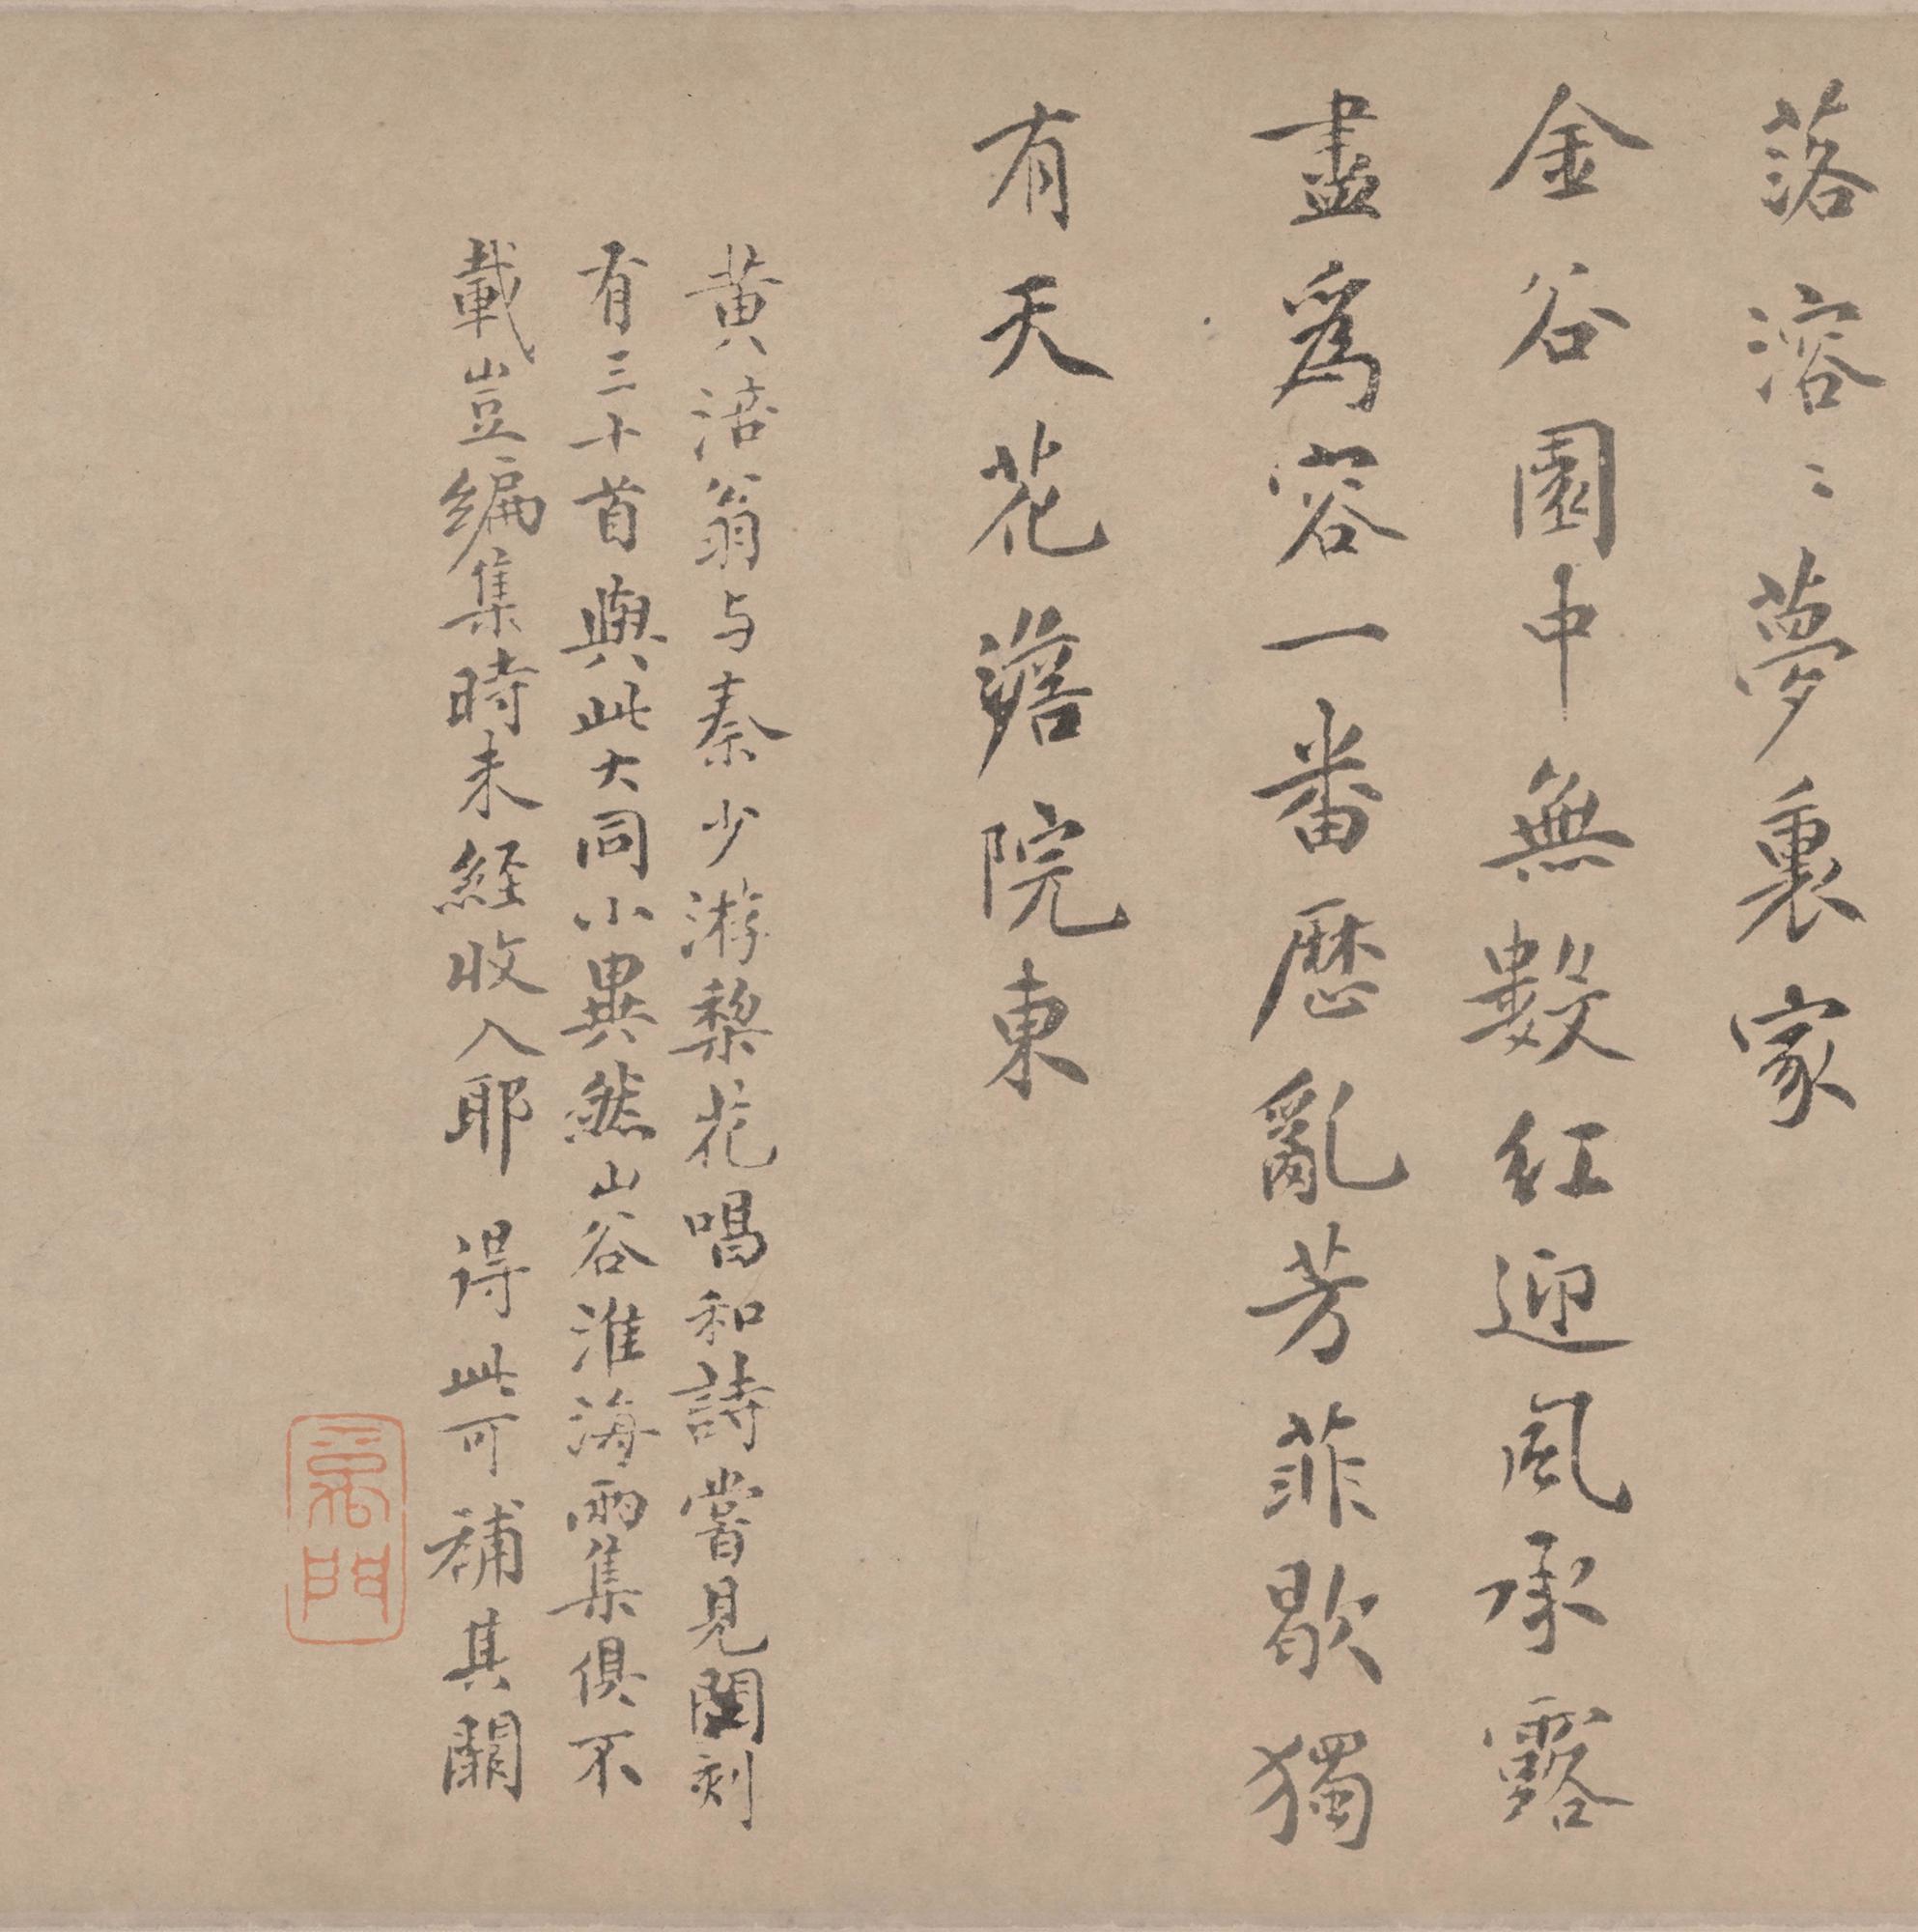 落溶〻夢裏家
金谷園中無數紅迎風承露
盡爲容一番歷亂芳菲歇獨
有天花澹院東
黄涪翁与秦少游棃花唱和詩嘗見閩刻
有三十首與此大同小異然山谷淮海兩集俱不
載豈編集時未經收入耶 得此可補其闕